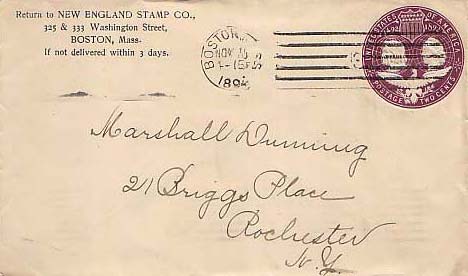 Return to NEW ENGLAND STAMP CO.,
325 & 333 Washington Street,
BOSTON, Mass.
If not delivered within 3 days.
BOSTON
NOV
1894
UNITED STATES OF AMERICA
1492 1892
POSTAGE TWO CENTS
Marshall Dunning
21 Briggs Place
Rochester
N.Y.